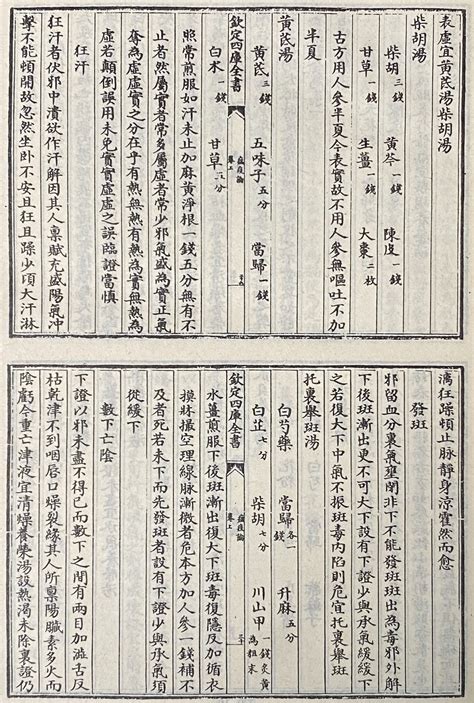 表虛宜黃芪湯柴胡湯
柴胡湯
柴胡三錢 黃芩一錢 陳皮一錢
甘草一錢 生薑一錢 大棗二枚
古方用人參半夏今表實故不用人參無嘔吐不加
半夏
黃芪湯
黃芪三錢 五味子五分 當歸一錢
欽定四庫全書 瘟疫論 卷上 十九
白朮一錢 甘草五分
照常煎服如汗未止加麻黃淨根一錢五分無有不
止者然屬實者常多屬虛者常少邪氣盛為實正氣
奪為虛虛實之分在乎有熱無熱有熱為實無熱為
虛若顛倒誤用未免實實虛虛之誤臨證當慎
狂汗
狂汗者伏邪中潰欲作汗解因其人禀賦充盛陽氣冲
擊不能頓開故忽然坐卧不安且狂且躁少頃大汗淋
漓狂躁頓止脉静身涼霍然而愈
發斑
邪留血分裏氣壅閉非下不能發斑斑出為毒邪外解
下後斑漸出更不可大下設有下證少與承氣緩緩下
之若復大下中氣不振斑毒內陷則危宜托裏舉斑
托裏舉斑湯
白芍藥 當歸各一錢 升麻五分
白芷七分 柴胡七分 川山甲二錢炙黃為粗末
欽定四庫全書 瘟疫論 卷上 二十
水薑煎服下後斑漸出復大下斑毒復隱反加循衣
摸牀撮空理線脉漸微者危本方加人參一錢補不
及者死若未下而先發斑者設有下證少與承氣須
從緩下
數下亡陰
下證以邪未盡不得已而數下之間有兩目加澁舌反
枯乾津不到咽唇口燥裂緣其人所禀陽臟素多火而
陰虧今重亡津液宜清燥養榮湯設熱渴未除裏證仍